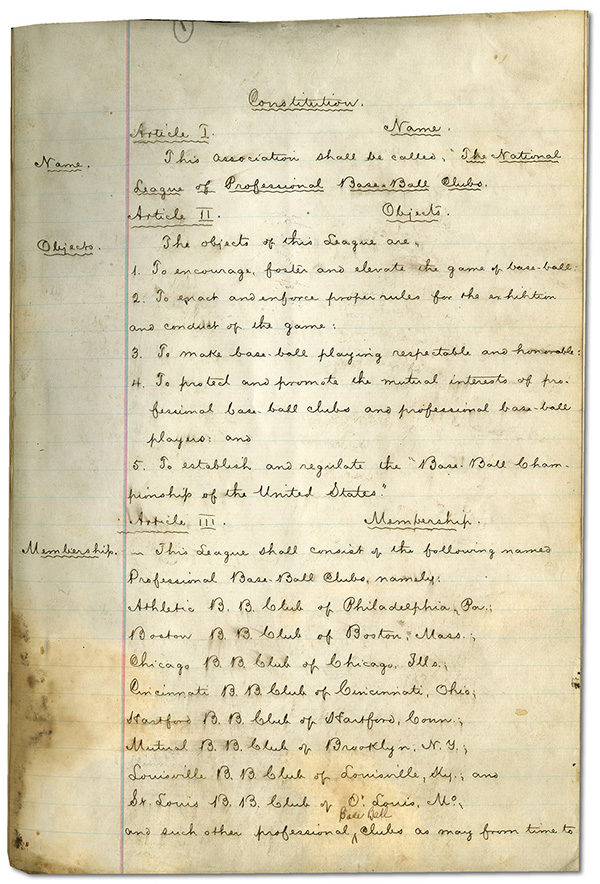 1
Constitution.
Article I. Name.
Name. This Association shall be called, "The National
League of Professional Base-Ball Clubs.
Article II. Objects.
Objects. The objects of this League are,
1. To encourage, foster and elevate the game of base-ball:
2. To enact and enforce proper rules for the exhibition
and conduct of the game:
3. To make base-ball playing respectable and honorable:
4. To protect and promote the mutual interests of pro-
fessional base-ball clubs and professional base-ball
players: and
5. To establish and regulate the "Base-Ball Cham-
pionship of the United States."
Article III. Membership.
Membership. This League shall consist of the following named
Professional Base-Ball Clubs, namely:
Athletic B. B. Club of Philadelphia, Pa.;
Boston B. B. Club of Boston, Mass.;
Chicago B. B. Club of Chicago, Ills.;
Cincinnati B. B. Club of Cincinnati, Ohio;
Hartford B. B. Club of Hartford, Conn.;
Mutual B. B. Club of Brooklyn, N. Y.;
Louisville B. B. Club of Louisville, Ky.; and
St. Louis B. B. Club of Louis, Mo;
Base Ball
and such other professional ^ Clubs as may from time to